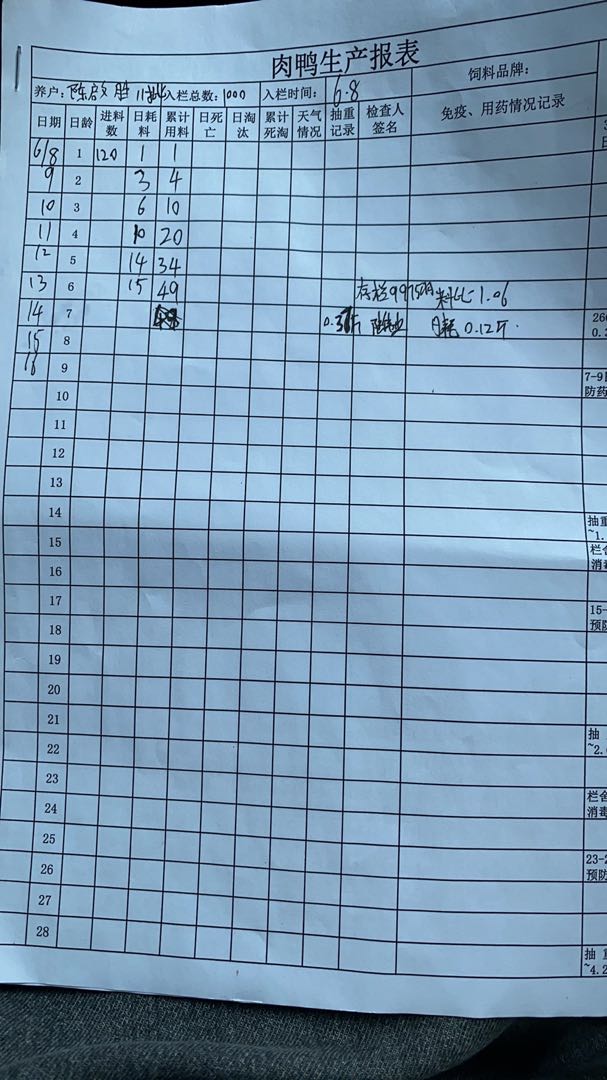 肉鸭生产报表
养户: 陈启胜 11批 入栏总数: 1000 入栏时间: 6.8 饲料品牌:
日期 日龄 进料数 日耗料 累计用料 日死亡 日淘汰 累计死淘 天气情况 抽重记录 检查人签名 免疫、用药情况记录
6/8 1 120 1 1
9 2 3 4
10 3 6 10
11 4 10 20
12 5 14 34
13 6 15 49 存栏9975只 料比1.06
14 7 日耗 0.12斤 26
0.
15 8
16 9 7-9
防药
10
11
12
13
14 抽重
~1.
15 栏舍
消毒
16
17 15-
预防
18
19
20
21
22 抽
~2.
23
24 栏舍
消毒
25
26 23-2
预防
27
28
抽 重
~4.2